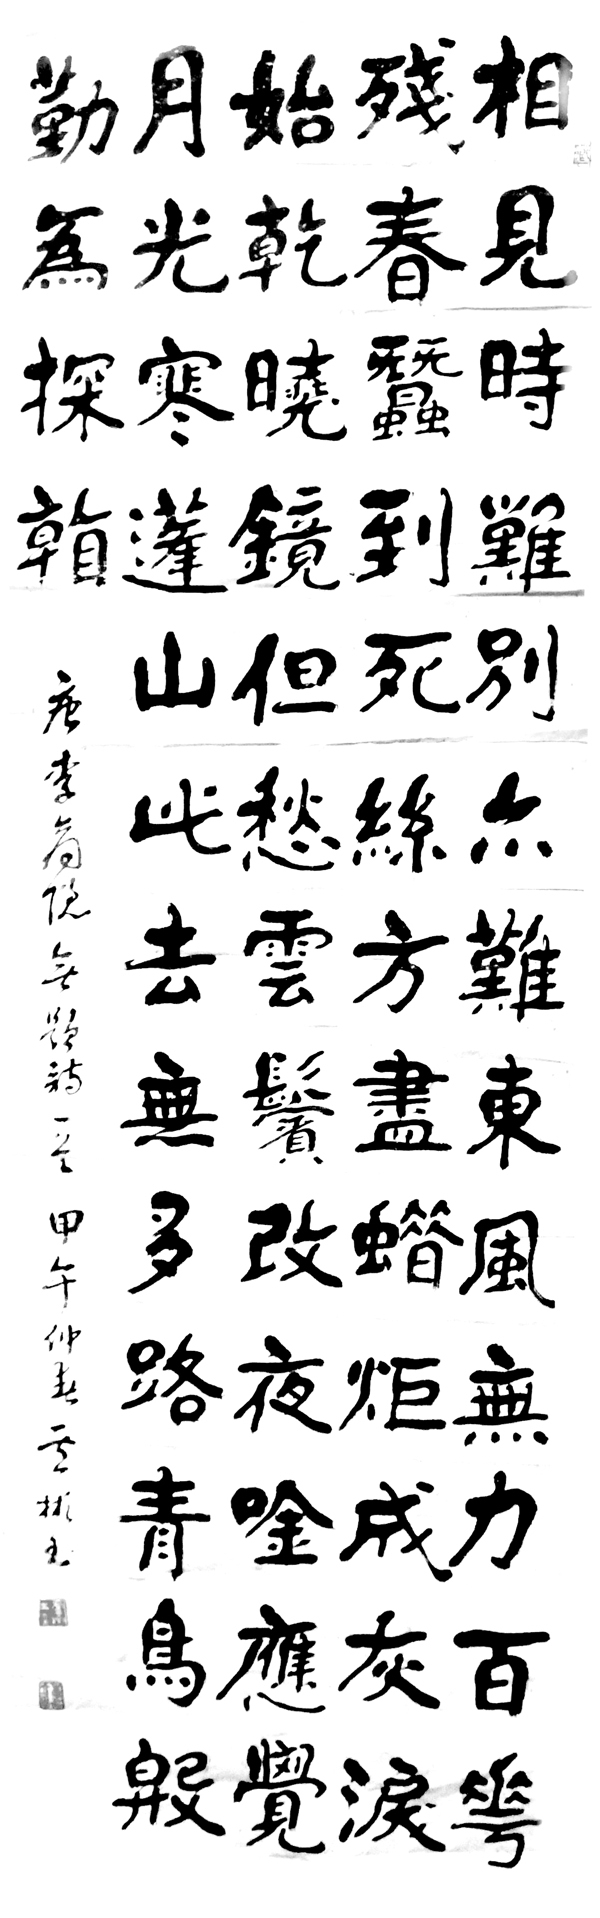 相見時難別亦難東風無力百花
殘春蠶到死絲方盡蠟炬成灰淚
始乾曉鏡但愁雲鬢改夜唫應覺
月光寒蓬山此去無多路青鳥殷
勤為探看
唐李商隱無題詩一首 甲午仲春 彬書